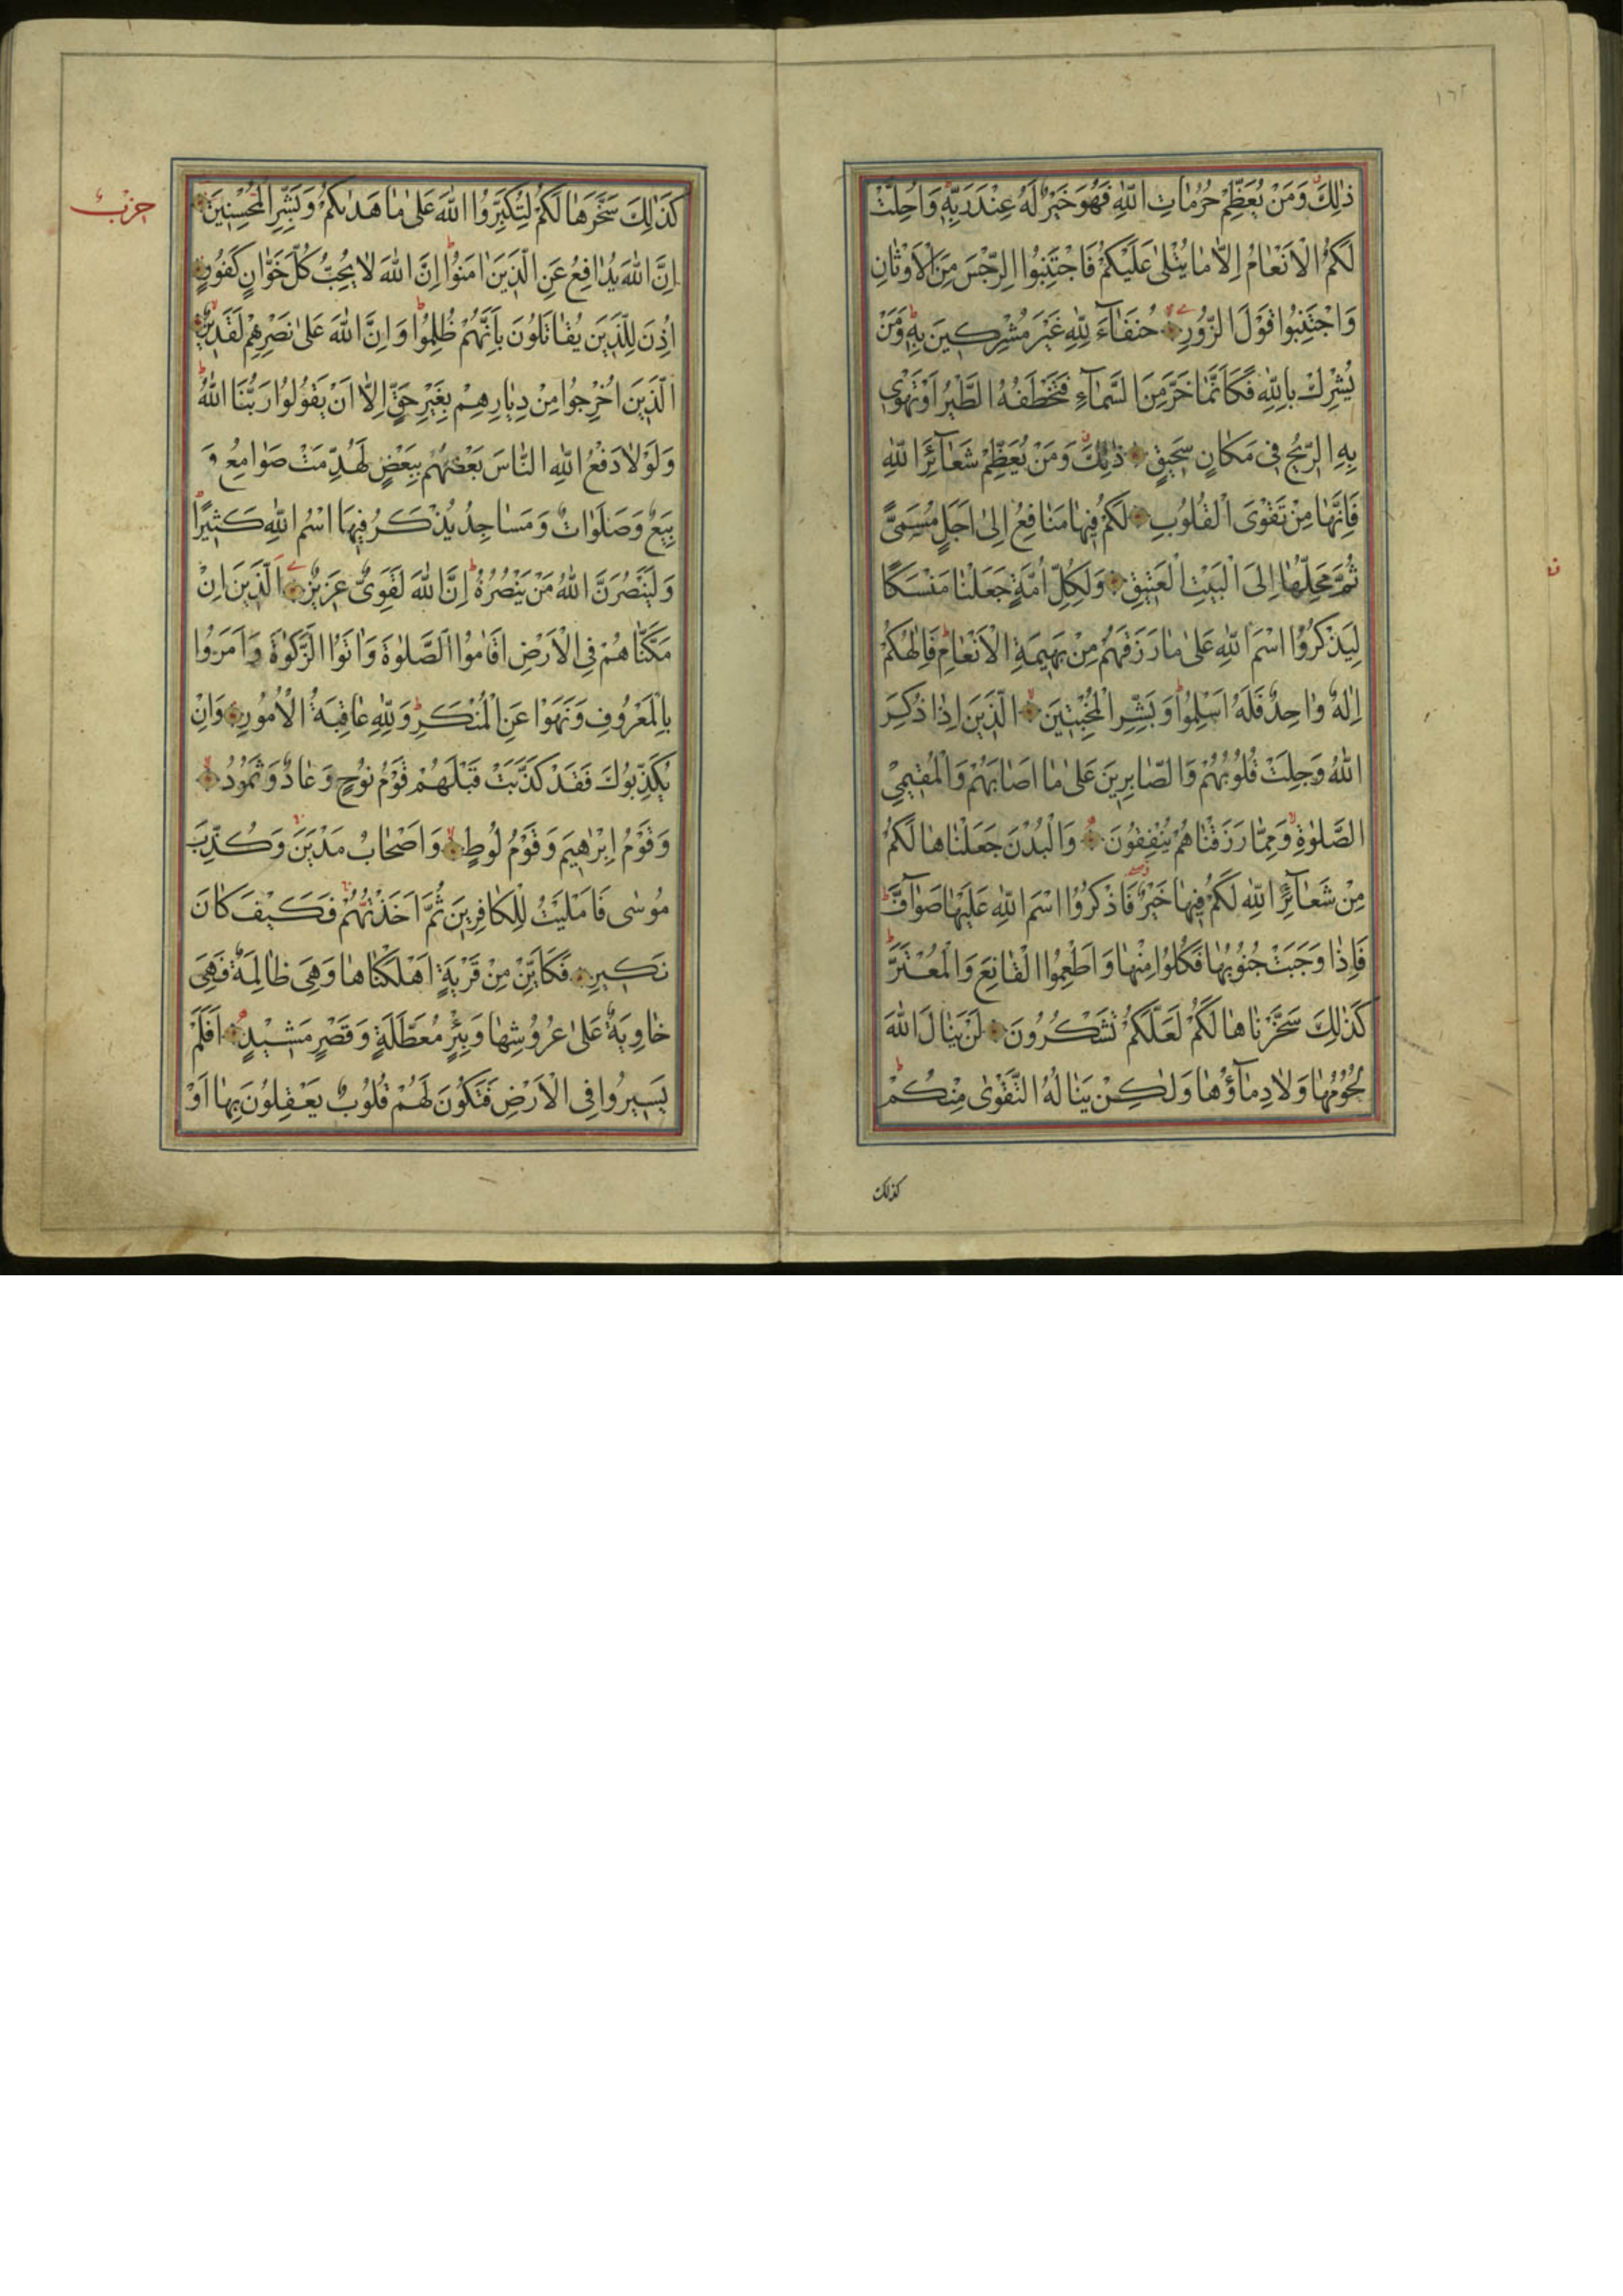 ١٦٢
ذٰلِكَ وَمَنْ يُعَظِّمْ حُرُمَاتِ اللّٰهِ فَهُوَ خَيْرٌ لَهُ عِنْدَ رَبِّهِ وَاُحِلَّتْ
لَكُمُ الْاَنْعَامُ اِلَّا مَا يُتْلٰى عَلَيْكُمْ فَاجْتَنِبُوا الرِّجْسَ مِنَ الْاَوْثَانِ
وَاجْتَنِبُوا قَوْلَ الزُّورِ حُنَفَآءَ لِلّٰهِ غَيْرَ مُشْرِكِينَ بِهِ وَمَنْ
يُشْرِكْ بِاللّٰهِ فَكَاَنَّمَا خَرَّ مِنَ السَّمَآءِ فَتَخْطَفُهُ الطَّيْرُ اَوْ تَهْوِي
بِهِ الرِّيحُ فِي مَكَانٍ سَحِيقٍ ذٰلِكَ وَمَنْ يُعَظِّمْ شَعَآئِرَ اللّٰهِ
فَاِنَّهَا مِنْ تَقْوَى الْقُلُوبِ لَكُمْ فِيهَا مَنَافِعُ اِلٰى اَجَلٍ مُسَمًّى
ثُمَّ مَحِلُّهَا اِلَى الْبَيْتِ الْعَتِيقِ وَلِكُلِّ اُمَّةٍ جَعَلْنَا مَنْسَكًا
لِيَذْكُرُوا اسْمَ اللّٰهِ عَلٰى مَا رَزَقَهُمْ مِنْ بَهِيمَةِ الْاَنْعَامِ فَاِلٰهُكُمْ
اِلٰهٌ وَاحِدٌ فَلَهُ اَسْلِمُوا وَبَشِّرِ الْمُخْبِتِينَ الَّذِينَ اِذَا ذُكِرَ
اللّٰهُ وَجِلَتْ قُلُوبُهُمْ وَالصَّابِرِينَ عَلٰى مَا اَصَابَهُمْ وَالْمُقِيمِي
الصَّلٰوةِ وَمِمَّا رَزَقْنَاهُمْ يُنْفِقُونَ وَالْبُدْنَ جَعَلْنَاهَا لَكُمْ
مِنْ شَعَآئِرِ اللّٰهِ لَكُمْ فِيهَا خَيْرٌ فَاذْكُرُوا اسْمَ اللّٰهِ عَلَيْهَا صَوَآفَّ
فَاِذَا وَجَبَتْ جُنُوبُهَا فَكُلُوا مِنْهَا وَاَطْعِمُوا الْقَانِعَ وَالْمُعْتَرَّ
كَذٰلِكَ سَخَّرْنَاهَا لَكُمْ لَعَلَّكُمْ تَشْكُرُونَ لَنْ يَنَالَ اللّٰهَ
لُحُومُهَا وَلَا دِمَآؤُهَا وَلٰكِنْ يَنَالُهُ التَّقْوٰى مِنْكُمْ
كذلك
حزب
كَذٰلِكَ سَخَّرَهَا لَكُمْ لِتُكَبِّرُوا اللّٰهَ عَلٰى مَا هَدٰيكُمْ وَبَشِّرِ الْمُحْسِنِينَ
اِنَّ اللّٰهَ يُدَافِعُ عَنِ الَّذِينَ اٰمَنُوا اِنَّ اللّٰهَ لَا يُحِبُّ كُلَّ خَوَّانٍ كَفُورٍ
اُذِنَ لِلَّذِينَ يُقَاتَلُونَ بِاَنَّهُمْ ظُلِمُوا وَاِنَّ اللّٰهَ عَلٰى نَصْرِهِمْ لَقَدِيرٌ
الَّذِينَ اُخْرِجُوا مِنْ دِيَارِهِمْ بِغَيْرِ حَقٍّ اِلَّا اَنْ يَقُولُوا رَبُّنَا اللّٰهُ
وَلَوْلَا دَفْعُ اللّٰهِ النَّاسَ بَعْضَهُمْ بِبَعْضٍ لَهُدِّمَتْ صَوَامِعُ وَ
بِيَعٌ وَصَلَوَاتٌ وَمَسَاجِدُ يُذْكَرُ فِيهَا اسْمُ اللّٰهِ كَثِيرًا
وَلَيَنْصُرَنَّ اللّٰهُ مَنْ يَنْصُرُهُ اِنَّ اللّٰهَ لَقَوِيٌّ عَزِيزٌ اَلَّذِينَ اِنْ
مَكَّنَّاهُمْ فِي الْاَرْضِ اَقَامُوا الصَّلٰوةَ وَاٰتَوُا الزَّكٰوةَ وَاَمَرُوا
بِالْمَعْرُوفِ وَنَهَوْا عَنِ الْمُنْكَرِ وَلِلّٰهِ عَاقِبَةُ الْاُمُورِ وَاِنْ
يُكَذِّبُوكَ فَقَدْ كَذَّبَتْ قَبْلَهُمْ قَوْمُ نُوحٍ وَعَادٌ وَثَمُودُ
وَقَوْمُ اِبْرٰهِيمَ وَقَوْمُ لُوطٍ وَاَصْحَابُ مَدْيَنَ وَكُذِّبَ
مُوسٰى فَاَمْلَيْتُ لِلْكَافِرِينَ ثُمَّ اَخَذْتُهُمْ فَكَيْفَ كَانَ
نَكِيرِ فَكَاَيِّنْ مِنْ قَرْيَةٍ اَهْلَكْنَاهَا وَهِيَ ظَالِمَةٌ فَهِيَ
خَاوِيَةٌ عَلٰى عُرُوشِهَا وَبِئْرٍ مُعَطَّلَةٍ وَقَصْرٍ مَشِيدٍ اَفَلَمْ
يَسِيرُوا فِي الْاَرْضِ فَتَكُونَ لَهُمْ قُلُوبٌ يَعْقِلُونَ بِهَا اَوْ